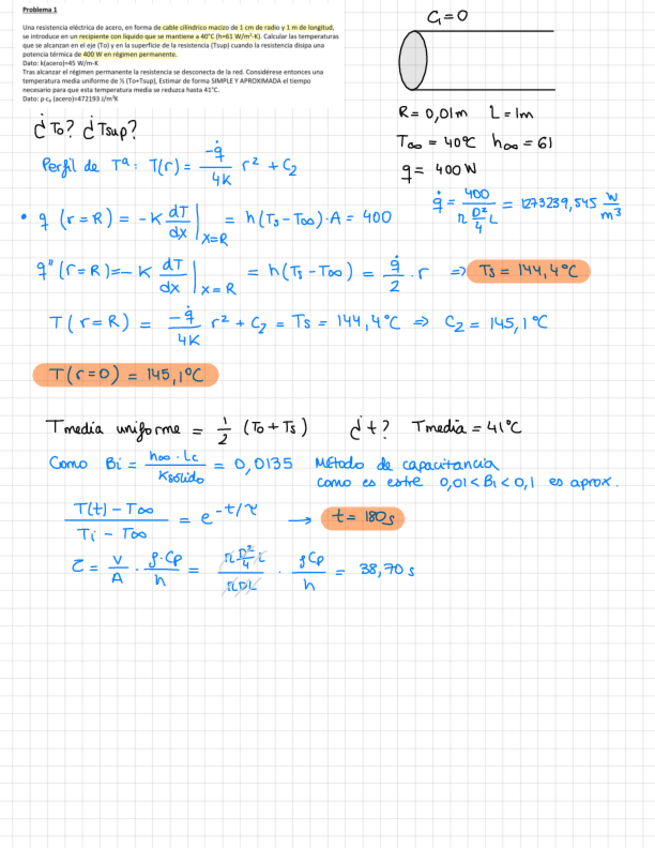 Problema 1
Una resistencia eléctrica de acero, en forma de cable cilíndrico macizo de 1 cm de radio y 1 m de longitud,
se introduce en un recipiente con líquido que se mantiene a 40°C (h=61 W/m²·K). Calcular las temperaturas
que se alcanzan en el eje (To) y en la superficie de la resistencia (Tsup) cuando la resistencia disipa una
potencia térmica de 400 W en régimen permanente.
Dato: k(acero)=45 W/m·K
Tras alcanzar el régimen permanente la resistencia se desconecta de la red. Considérese entonces una
temperatura media uniforme de ½ (To+Tsup), Estimar de forma SIMPLE Y APROXIMADA el tiempo
necesario para que esta temperatura media se reduzca hasta 41°C.
Dato: ρ·cₚ (acero)=472193 J/m³K
C₁=0
R = 0,01m L = 1m
T∞ = 40°C h∞ = 61
q = 400 W
q̇ = 400 / (π D²/4 L) = 1273239,545 W/m³
¿To? ¿Tsup?
Perfil de Tª: T(r) = -q̇/4K r² + C₂
• q (r=R) = -K dT/dx |x=R = h(Ts-T∞)·A = 400
q" (r=R)=-K dT/dx |x=R = h(Ts-T∞) = q̇/2 · r ⇒ Ts = 144,4°C
T(r=R) = -q̇/4K r² + C₂ = Ts = 144,4°C ⇒ C₂ = 145,1°C
T(r=0) = 145,1°C
Tmedia uniforme = 1/2 (To+Ts) ¿t? Tmedia = 41°C
Como Bi = h∞·Lc / Ksólido = 0,0135 Método de capacitancia
como es este 0,01<Bi<0,1 es aprox.
T(t)-T∞ / Ti-T∞ = e^-t/τ → t = 180s
τ = V/A · ρ·Cp/h = π D²/4 L / πDL · ρCp/h = 38,70 s